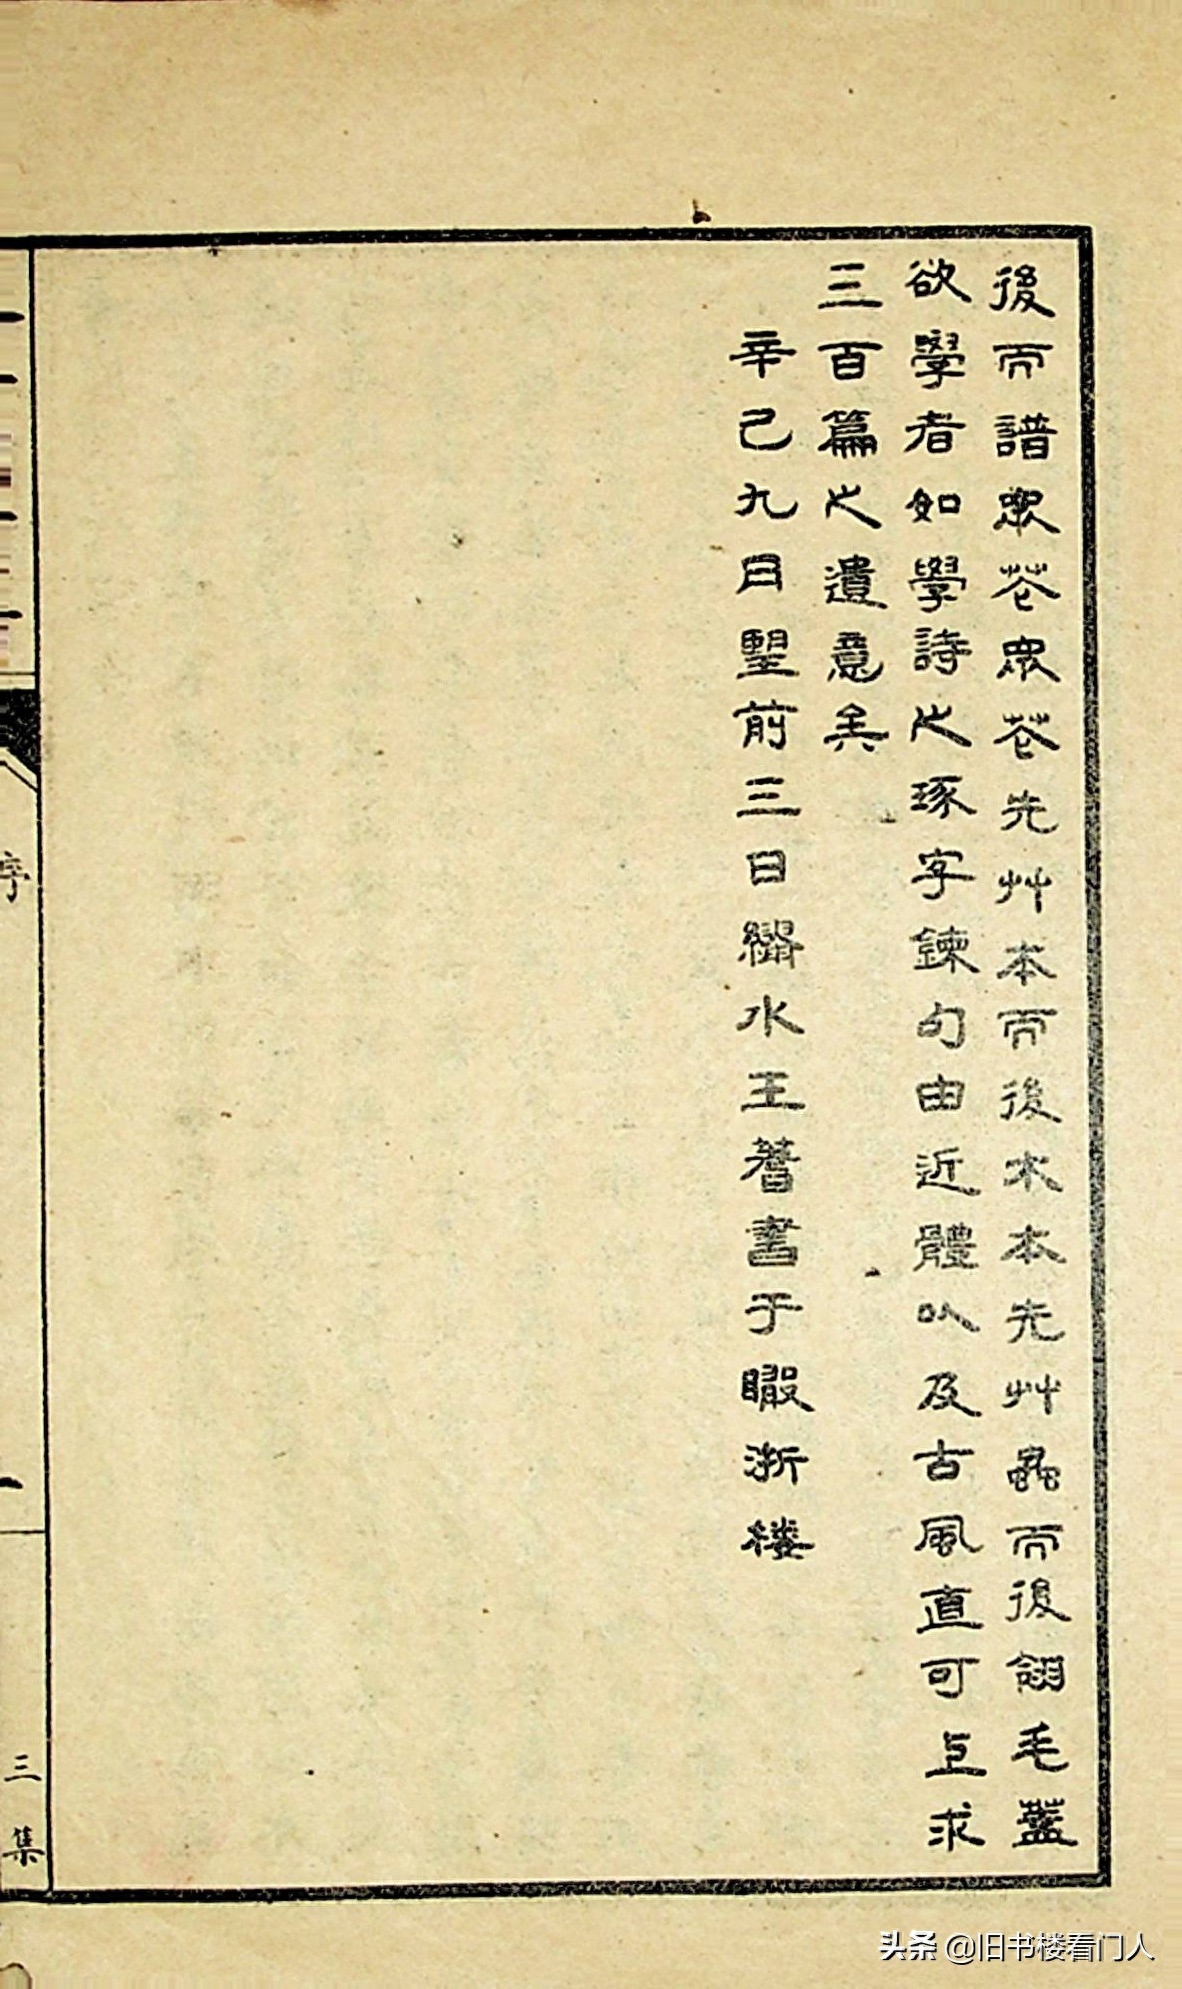 後而譜眾花眾花先艸本而後木本先艸蟲而後翎毛蓋
欲學者如學詩之琢字鍊句由近體以及古風直可上求
三百篇之遺意矣
辛巳九月望前三日繡水王蓍書于瞰浙樓
序
一
三集
头条 @旧书楼看门人